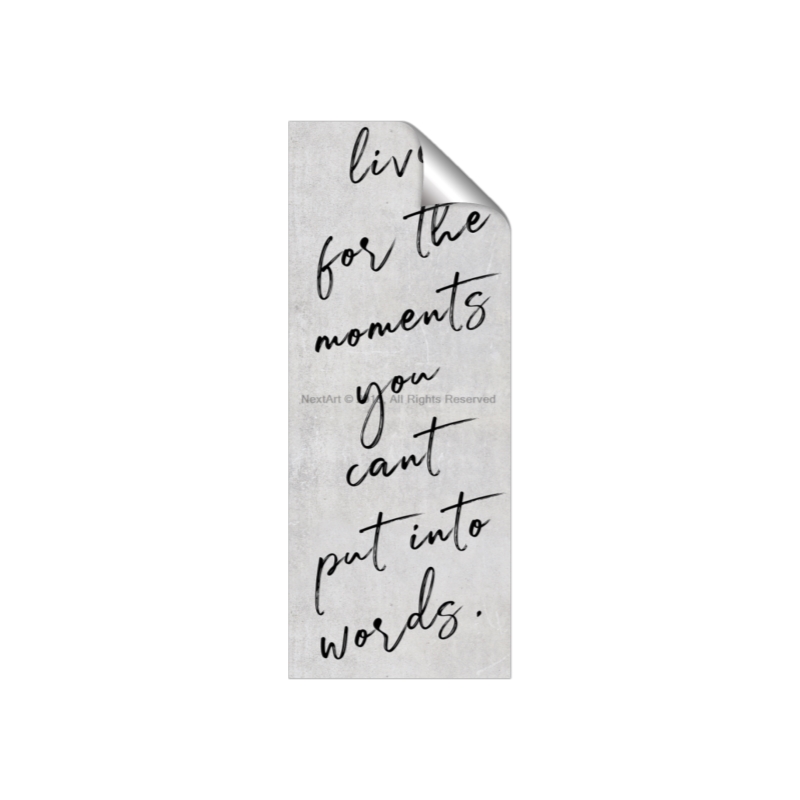 for the
moments
you
NextArt © All Rights Reserved
cant
put into
words.